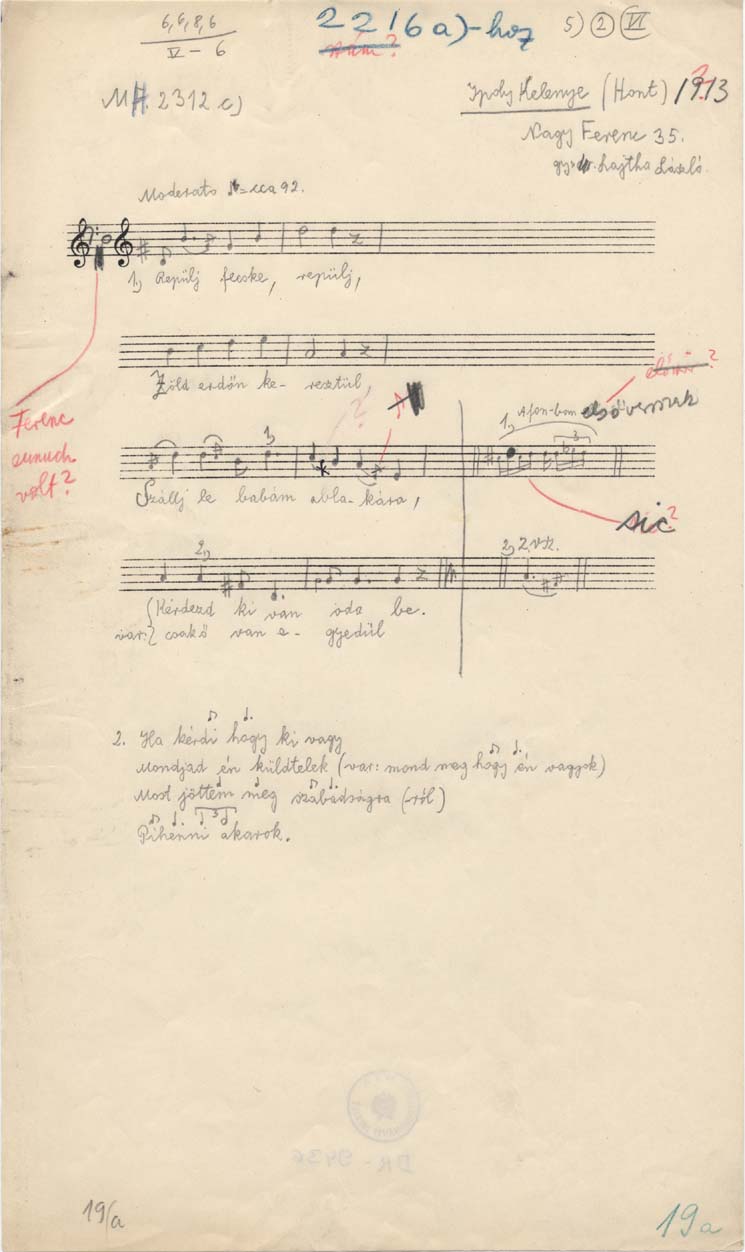 6,6,8,6
V – 6
2216a)-hoz
szám?
5) 2 VI
MH. 2312 c)
Ipoly Kelenye (Hont) 1913
?
Nagy Ferenc 35.
gy. dr. Lajtha László.
Moderato = cca 92.
1.) Repülj fecske, repülj,
Zöld erdőn ke- resztül,
előző?
Ferenc
eunuch
volt?
?
1,
1, A fon-ban első versnek
3
Szállj le babám abla- kára,
sic ?
2,
2, 2. vsz.
Kérdezd ki van oda be.
var: csak ő van e- gyedül
2. Ha kérdi hogy ki vagy
Mondjad én küldtelek (var: mond meg hogy én vagyok)
Most jöttem meg szabadságra (-ról)
3
Pihenni akarok.
DR - 9436
19/a
19a